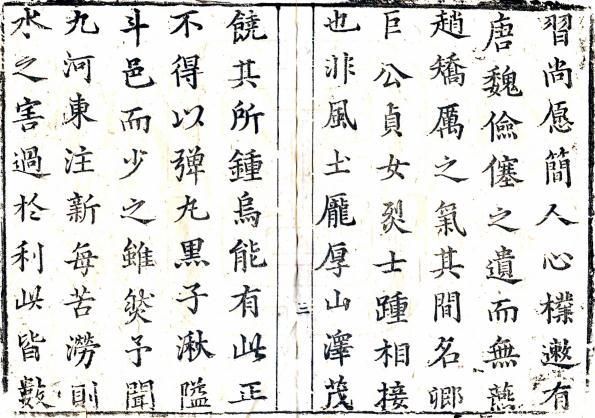 習尚愿簡人心樸遬有
唐魏儉僿之遺而無燕
趙矯厲之氣其間名卿
巨公貞女烈士踵相接
也非風土龐厚山澤茂
三
饒其所鍾烏能有此正
不得以弹丸黒子湫隘
斗邑而少之雖然予聞
九河東注新每苦澇則
水之害過於利此皆數